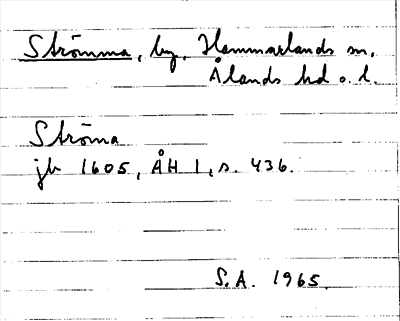 Strömma, by, Hammarlands sn,
Ålands hd o. l.
Ströma
jb 1605, ÅH 1, s. 436.
S.A. 1965.